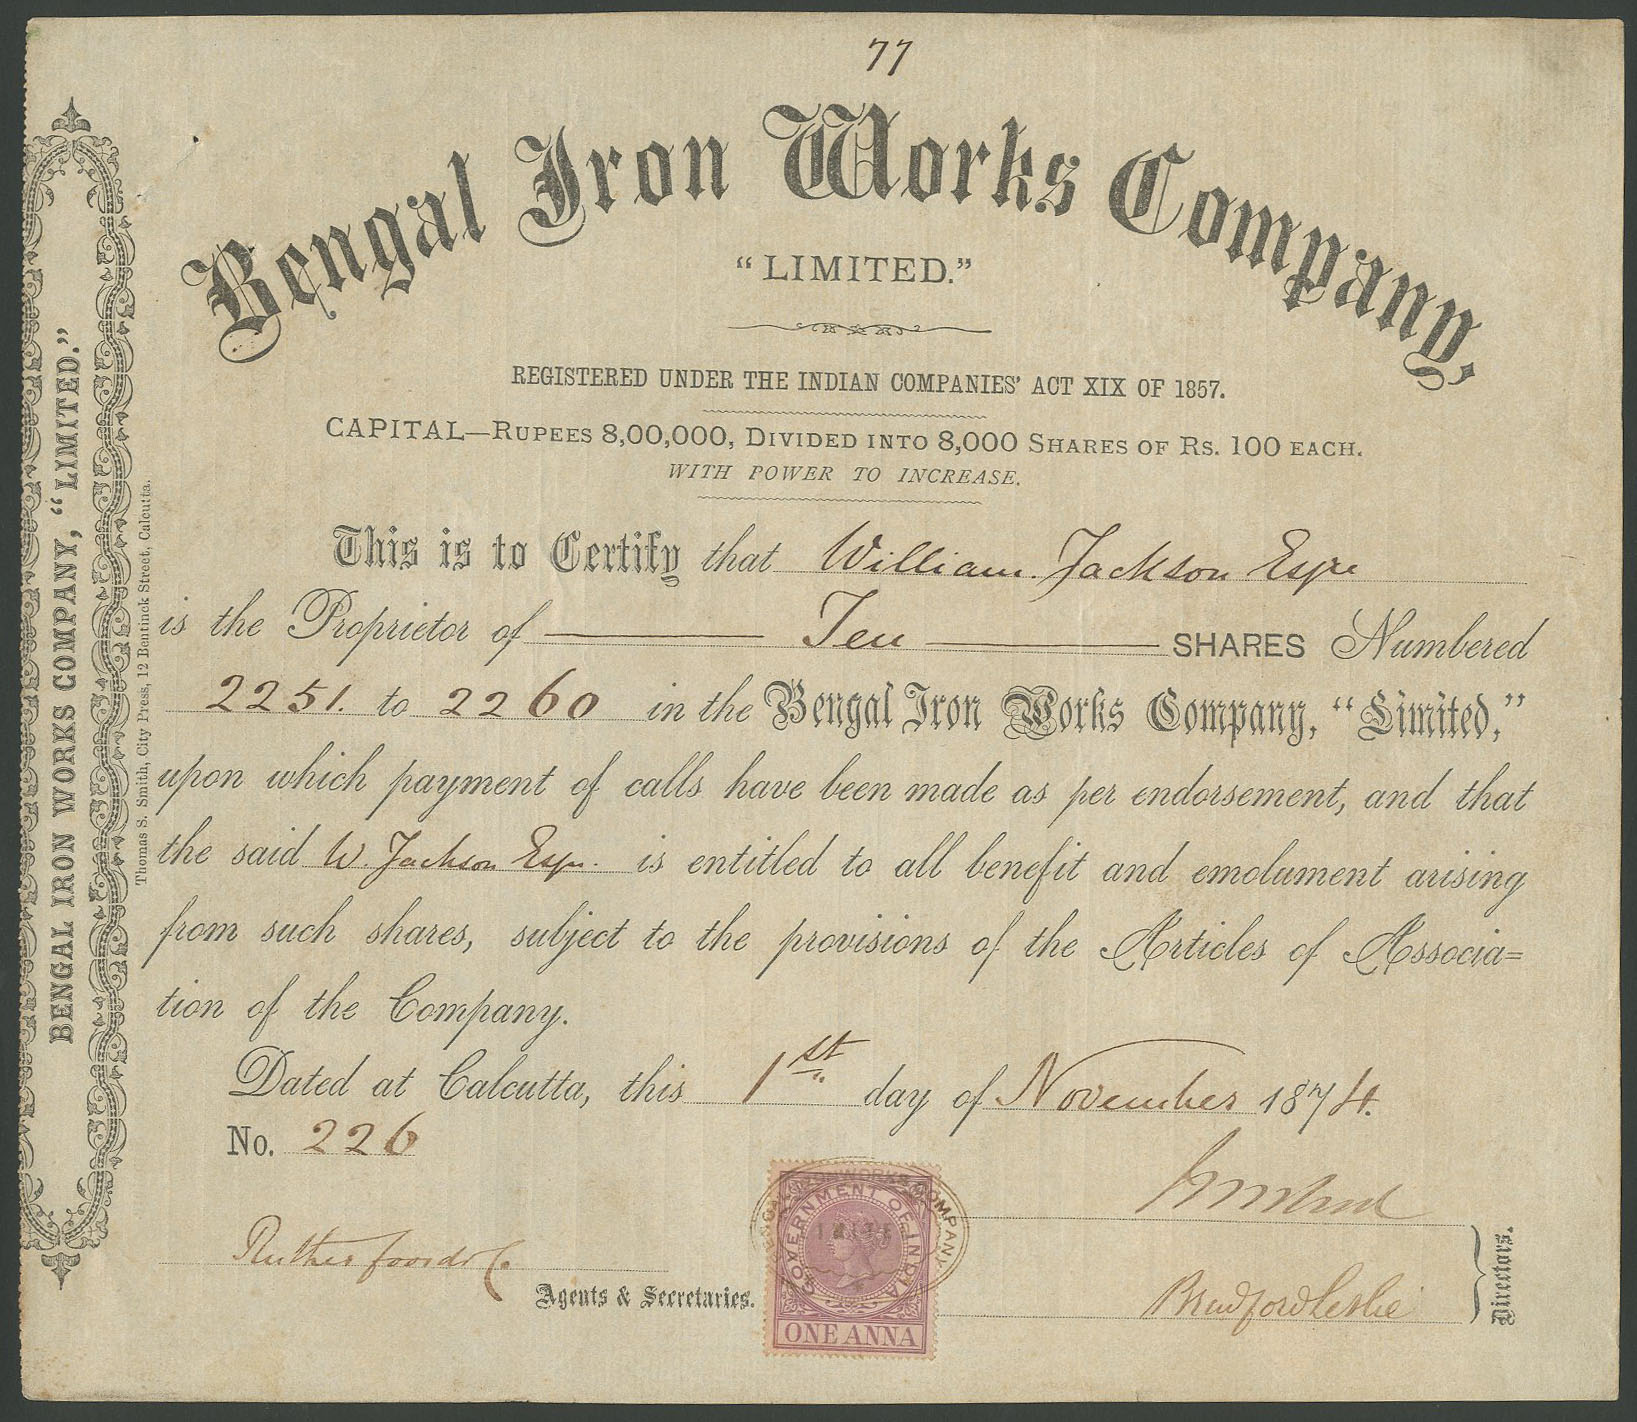 77
Bengal Iron Works Company,
"LIMITED."
REGISTERED UNDER THE INDIAN COMPANIES' ACT XIX OF 1857.
CAPITAL—RUPEES 8,00,000, DIVIDED INTO 8,000 SHARES OF RS. 100 EACH.
WITH POWER TO INCREASE.
This is to Certify that William Jackson Esqre
is the Proprietor of Ten SHARES Numbered
2251. to 2260 in the Bengal Iron Works Company, "Limited,"
upon which payment of calls have been made as per endorsement, and that
the said W. Jackson Esqr. is entitled to all benefit and emolument arising
from such shares, subject to the provisions of the Articles of Associa=
tion of the Company.
Dated at Calcutta, this 1st day of November 1874.
No. 226
Agents & Secretaries.
Bradford Leslie
Directors.
GOVERNMENT OF INDIA
ONE ANNA
WORKS COMPANY
BENGAL IRON WORKS COMPANY, "LIMITED."
Thomas S. Smith, City Press, 12 Bentinck Street, Calcutta.